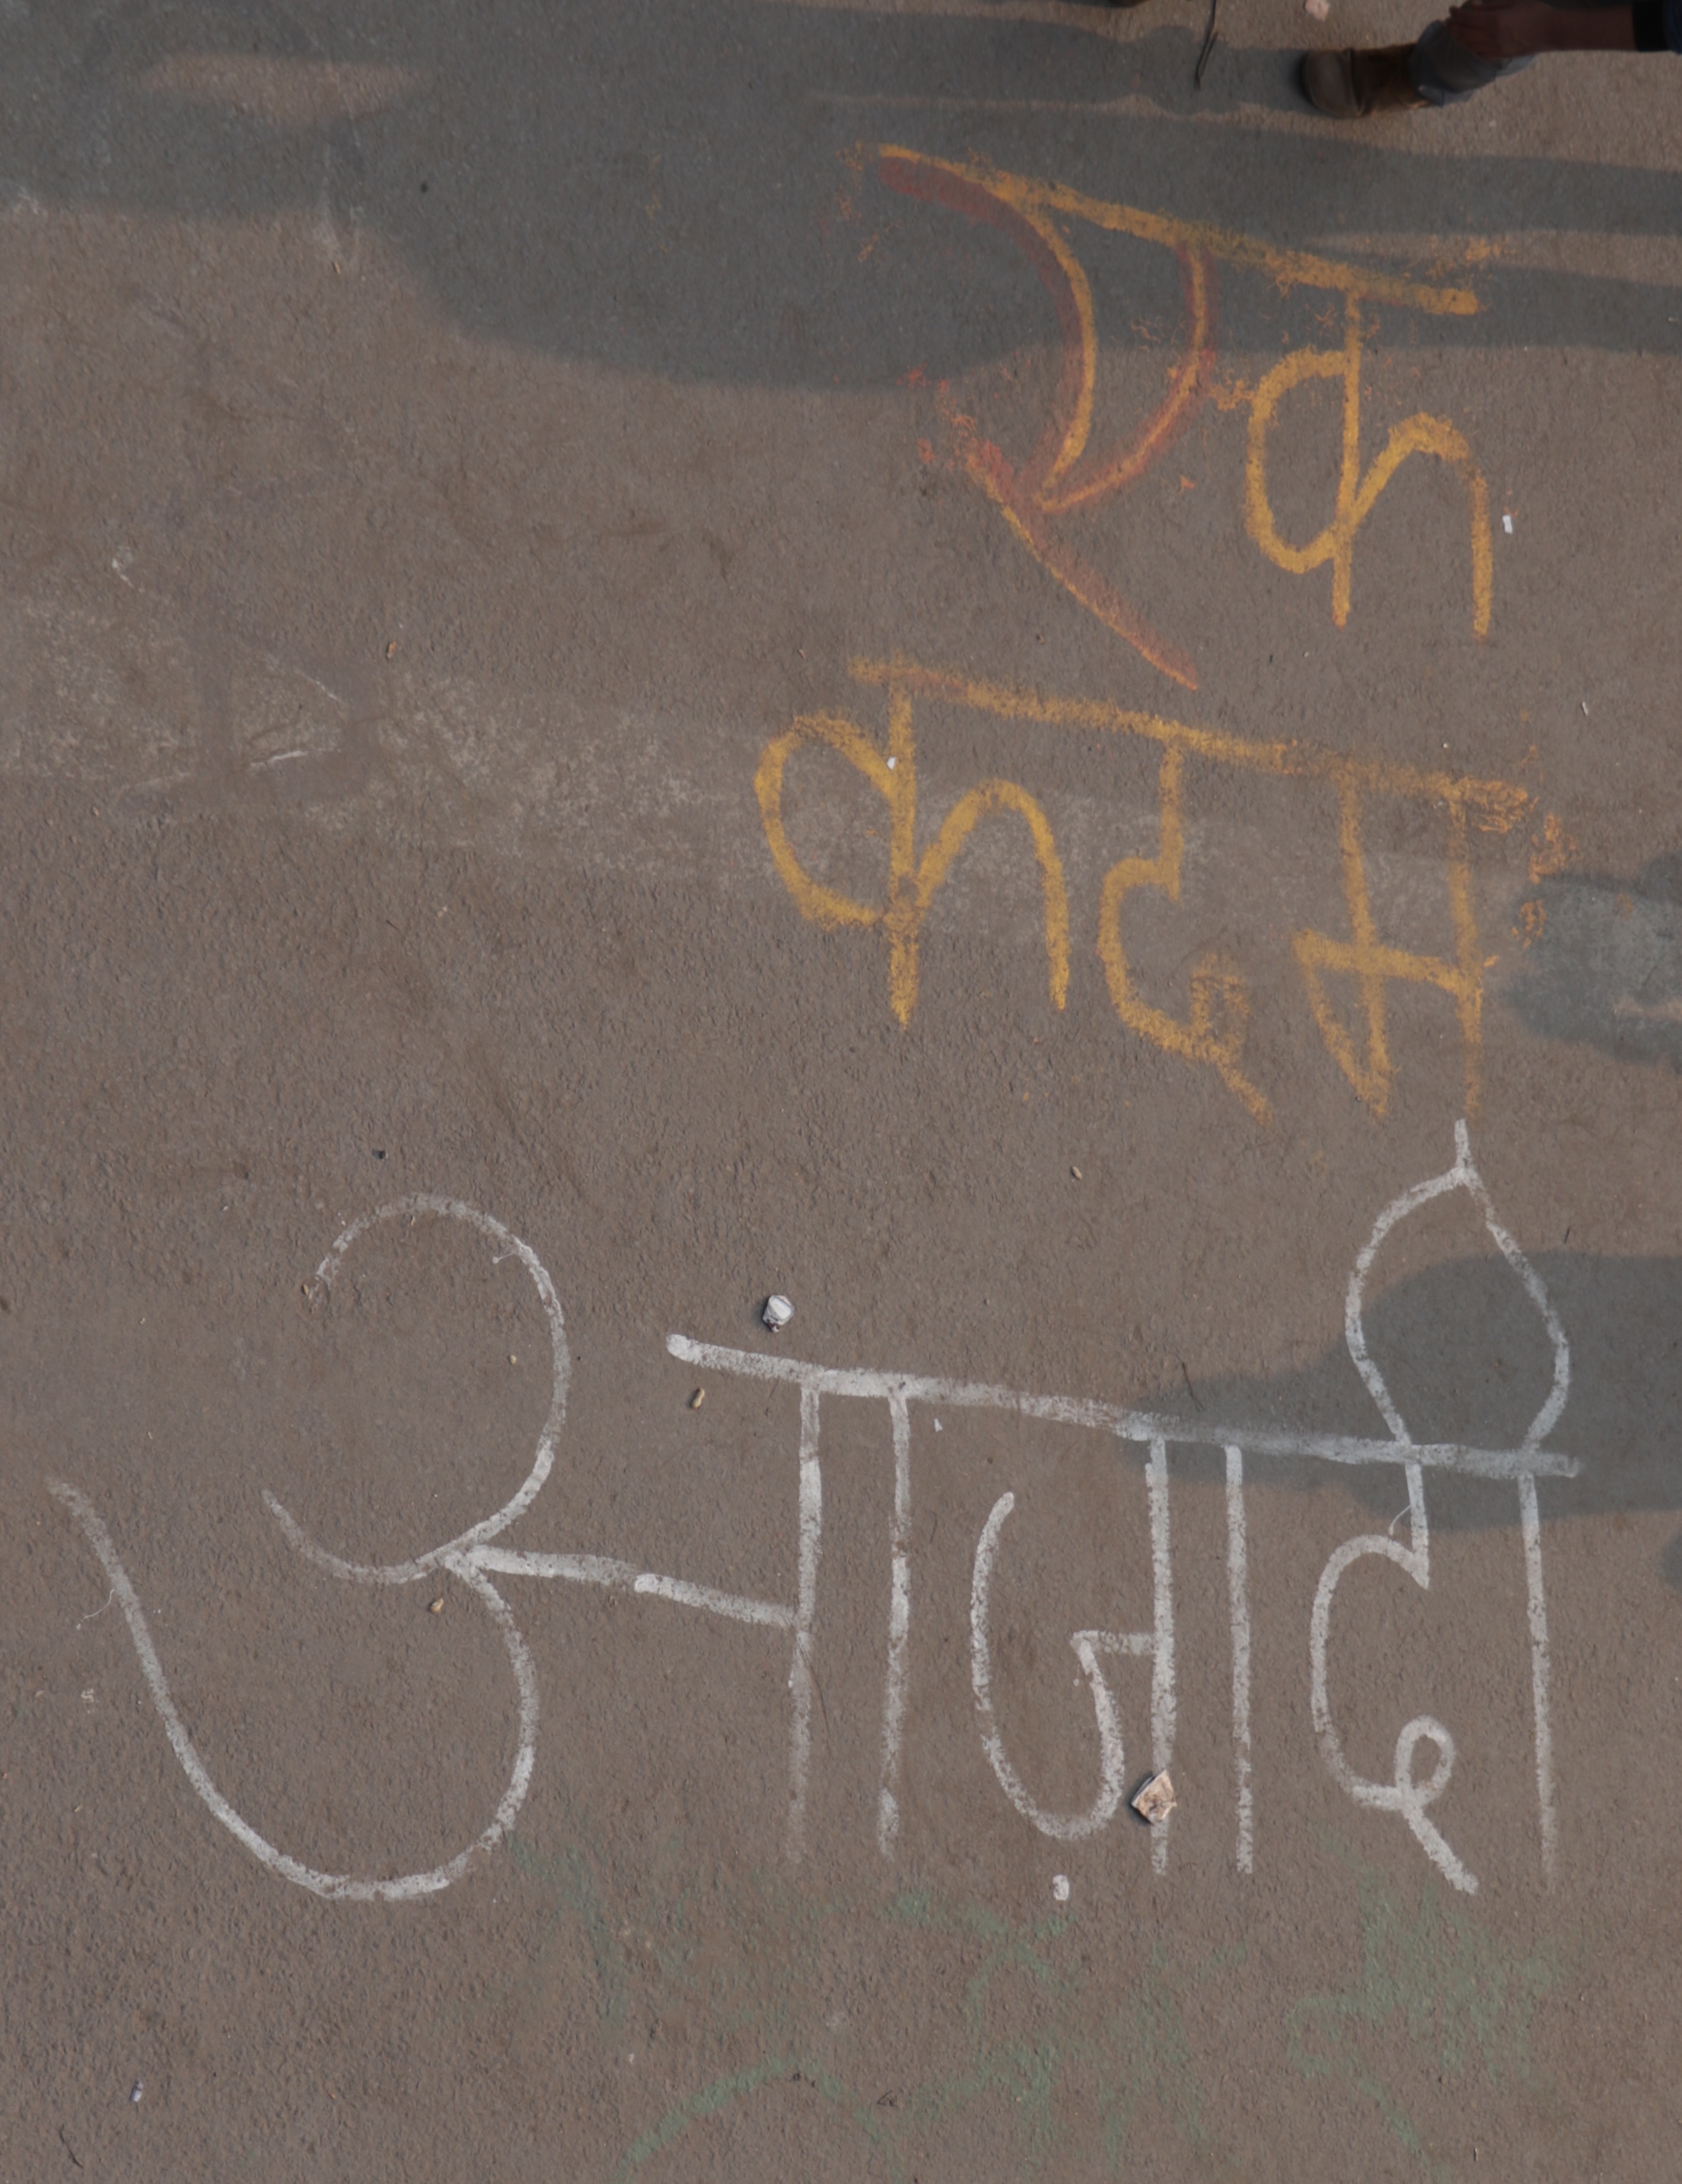 एक
कदम
आज़ादी